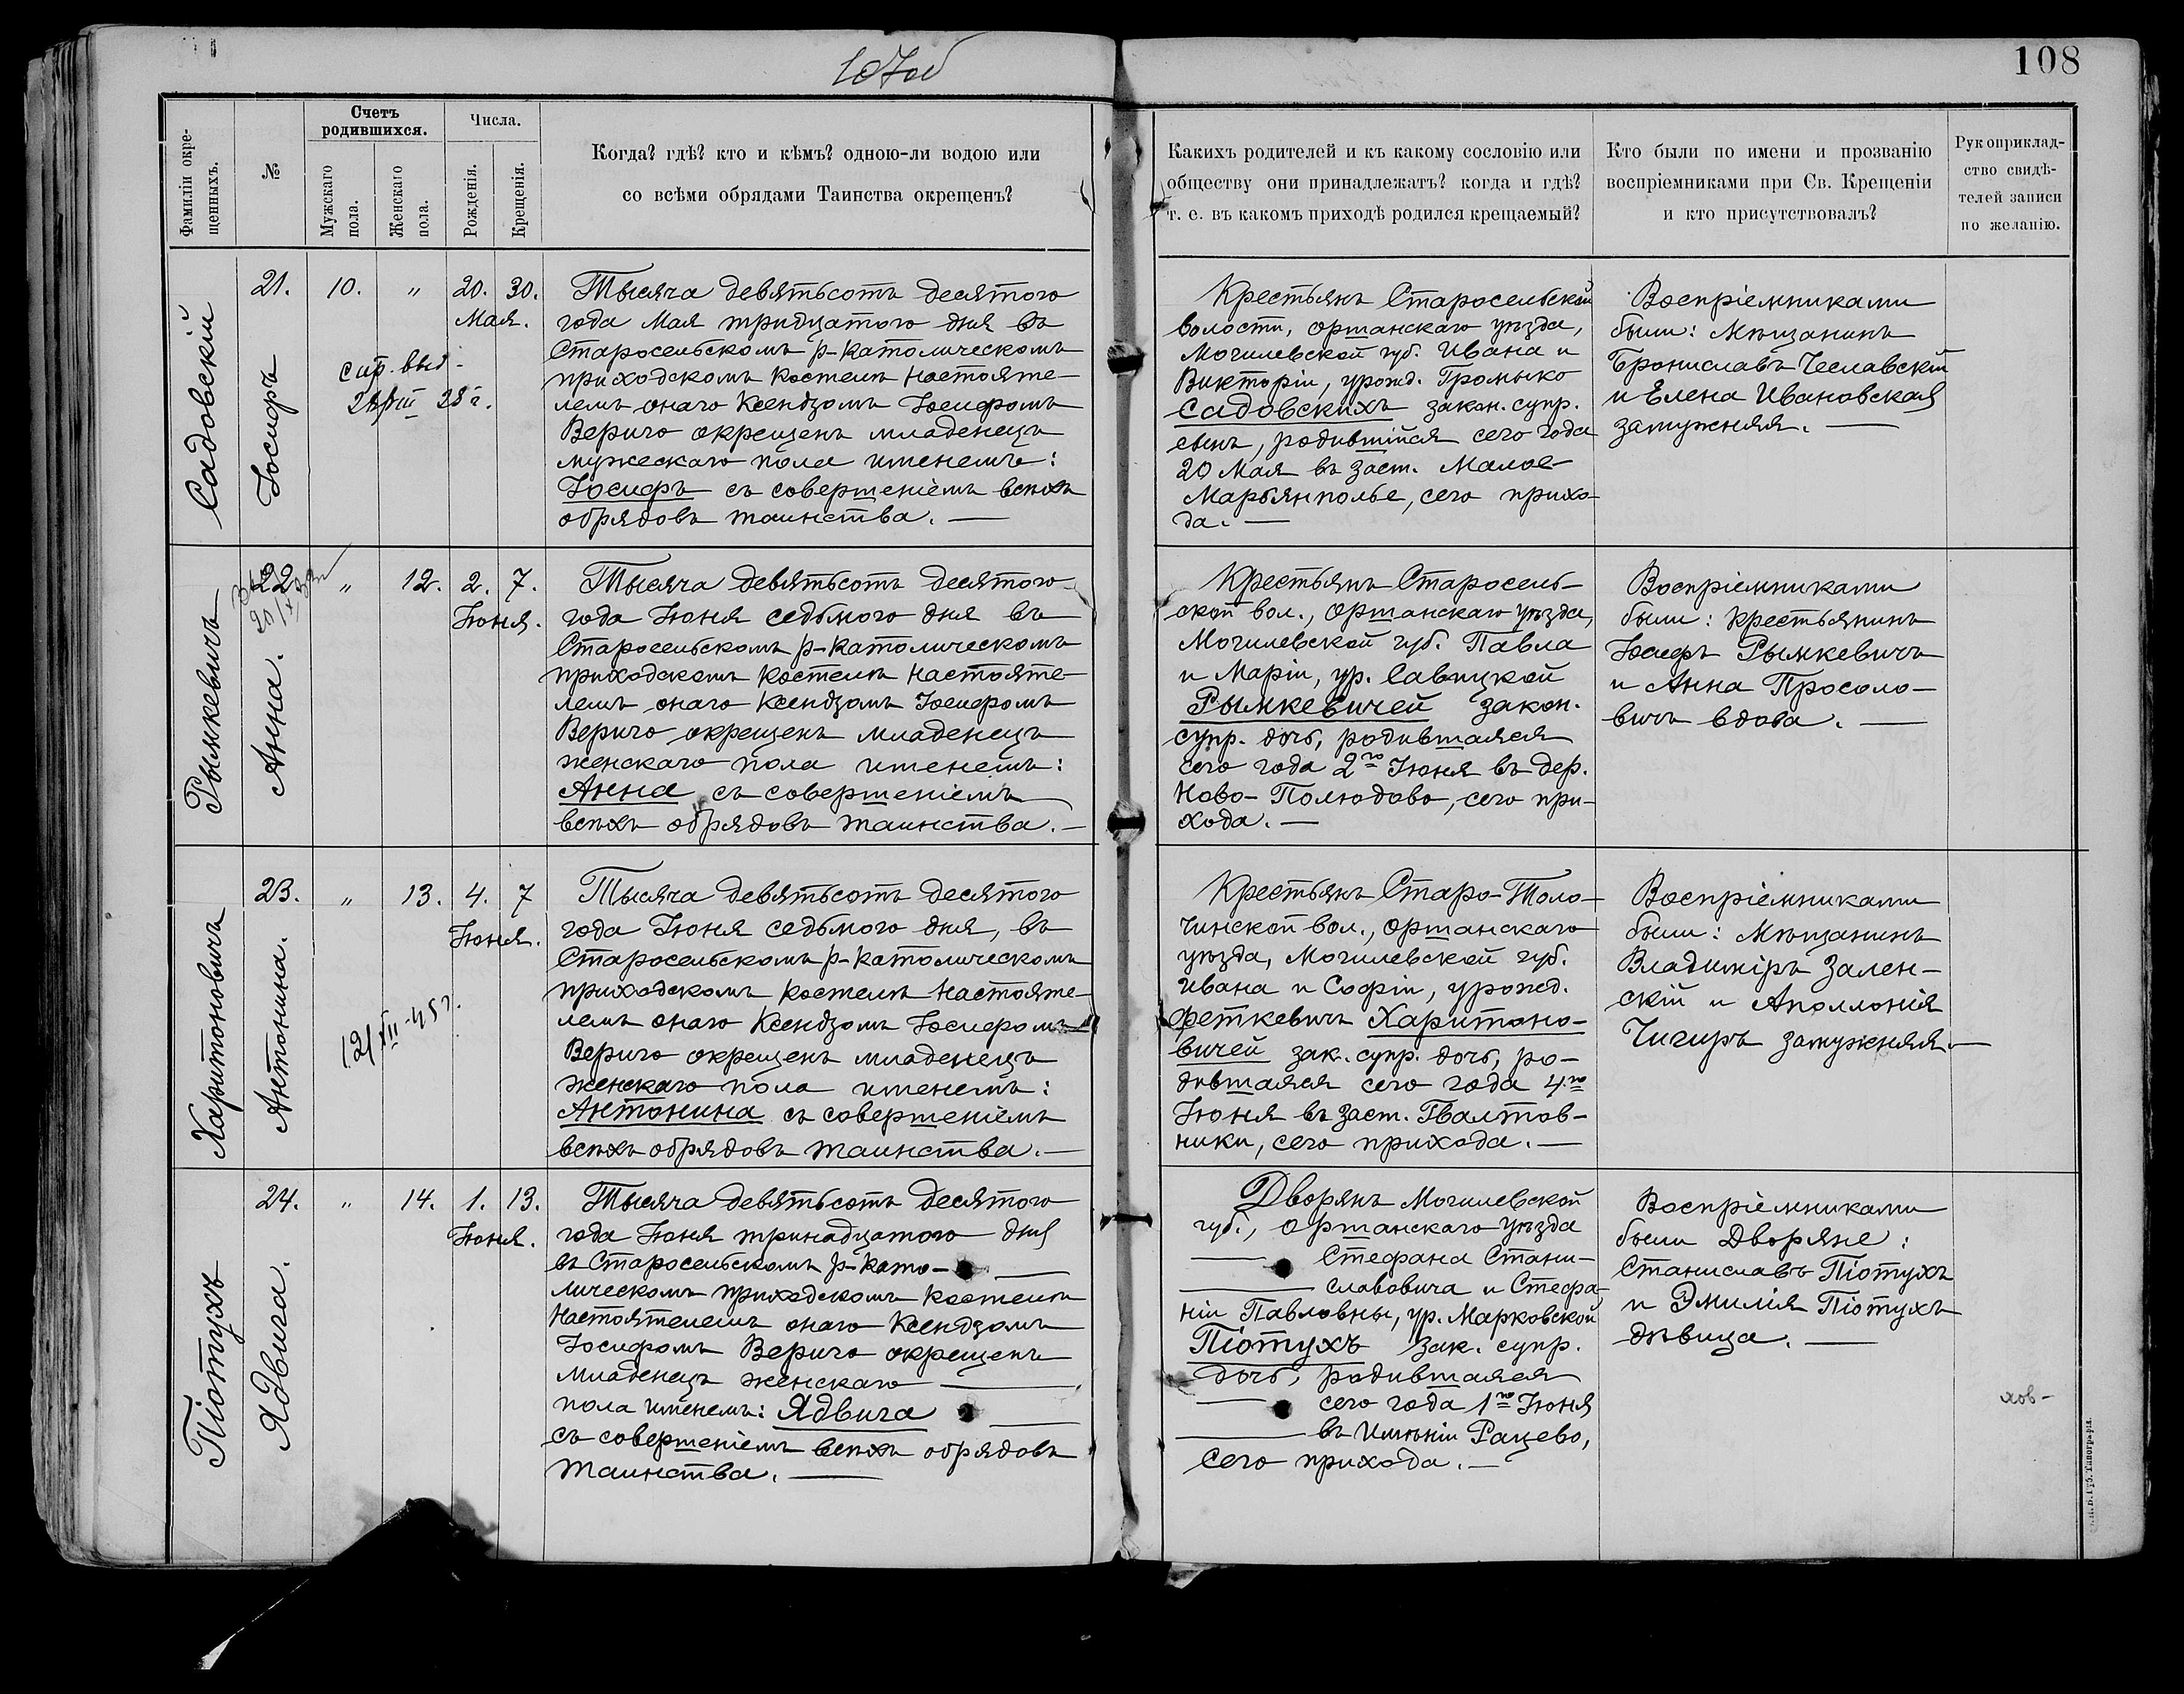 107об
108
Фамиліи окре-
щенныхъ.
№
Счетъ
родившихся.
Мужскаго
пола.
Женскаго
пола.
Числа.
Рожденія.
Крещенія.
Когда? гдѣ? кто и кѣмъ? одною-ли водою или
со всѣми обрядами Таинства окрещенъ?
Какихъ родителей и къ какому сословію или
обществу они принадлежатъ? когда и гдѣ?
т. е. въ какомъ приходѣ родился крещаемый?
Кто были по имени и прозванію
воспріемниками при Св. Крещеніи
и кто присутствовалъ?
Рукоприклад-
ство свидѣ-
телей записи
по желанію.
Садовскій
21.
Іосифъ
10.
"
20. 30.
Мая.
спр. выд.
28 г.
Тысяча девятьсотъ десятого
года Мая тридцатого дня въ
Старосельскомъ р-католическомъ
приходскомъ костелѣ Настояте-
лемъ онаго Ксендзомъ Іосифомъ
Вериго окрещенъ младенецъ
мужескаго пола именемъ:
Іосифъ съ совершеніемъ всѣхъ
обрядовъ таинства. —
Крестьянъ Старосельской
волости, Оршанскаго уѣзда,
Могилевской губ. Ивана и
Викторіи, урожд. Громыко
Садовскихъ закон. супр.
сынъ, родившійся сего года
20 Мая въ заст. Малое-
Марьянполье, сего прихо-
да. —
Воспріемниками
были: Мѣщанинъ
Брониславъ Чеславскій
и Елена Ивановская
замужняя. —
Рымкевичъ
22
Анна.
"
12.
2. 7.
Іюня.
Тысяча девятьсотъ десятого
года Іюня седьмого дня въ
Старосельскомъ р-католическомъ
приходскомъ костелѣ Настояте-
лемъ онаго Ксендзомъ Іосифомъ
Вериго окрещенъ младенецъ
женскаго пола именемъ:
Анна съ совершеніемъ
всѣхъ обрядовъ таинства. —
Крестьянъ Старосель-
ской вол., Оршанскаго уѣзда,
Могилевской губ. Павла
и Маріи, ур. Савицкой
Рымкевичей закон.
супр. дочь, родившаяся
сего года 2го Іюня въ дер.
Ново-Полюдово, сего при-
хода. —
Воспріемниками
были: Крестьянинъ
Іосифъ Рымкевичъ
и Анна Просоло-
вичъ вдова. —
Харитоновичъ
23.
Антонина.
"
13.
4. 7
Іюня.
12/XII-45 г.
Тысяча девятьсотъ десятого
года Іюня седьмого дня, въ
Старосельскомъ р-католическомъ
приходскомъ костелѣ Настояте-
лемъ онаго Ксендзомъ Іосифомъ
Вериго окрещенъ младенецъ
женскаго пола именемъ:
Антонина съ совершеніемъ
всѣхъ обрядовъ таинства. —
Крестьянъ Старо-Толо-
чинской вол., Оршанскаго
уѣзда, Могилевской губ.
Ивана и Софіи, урожд.
Феткевичъ Харитоно-
вичей зак. супр. дочь, ро-
дившаяся сего года 4го
Іюня въ заст. Гвалтов-
ники, сего прихода. —
Воспріемниками
были: Мѣщанинъ
Владиміръ Зален-
скій и Аполлонія
Чигиръ замужняя. —
Піотухъ
24.
Ядвига.
"
14.
1. 13.
Іюня.
Тысяча девятьсотъ десятого
года Іюня тринадцатого дня
въ Старосельскомъ р-като- —
лическомъ приходскомъ костелѣ
Настоятелемъ онаго Ксендзомъ
Іосифомъ Вериго окрещенъ
младенецъ женскаго —
пола именемъ: Ядвига —
съ совершеніемъ всѣхъ обрядовъ
таинства. —
Дворянъ Могилевской
губ., Оршанскаго уѣзда
— Стефана Стани-
— славовича и Стефа-
ніи Павловны, ур. Марковской
Піотухъ зак. супр.
дочь, родившаяся
— сего года 1го Іюня
— въ Имѣніи Рацево,
сего прихода. —
Воспріемниками
были Дворяне:
Станиславъ Піотухъ
и Эмилія Піотухъ
дѣвица. —